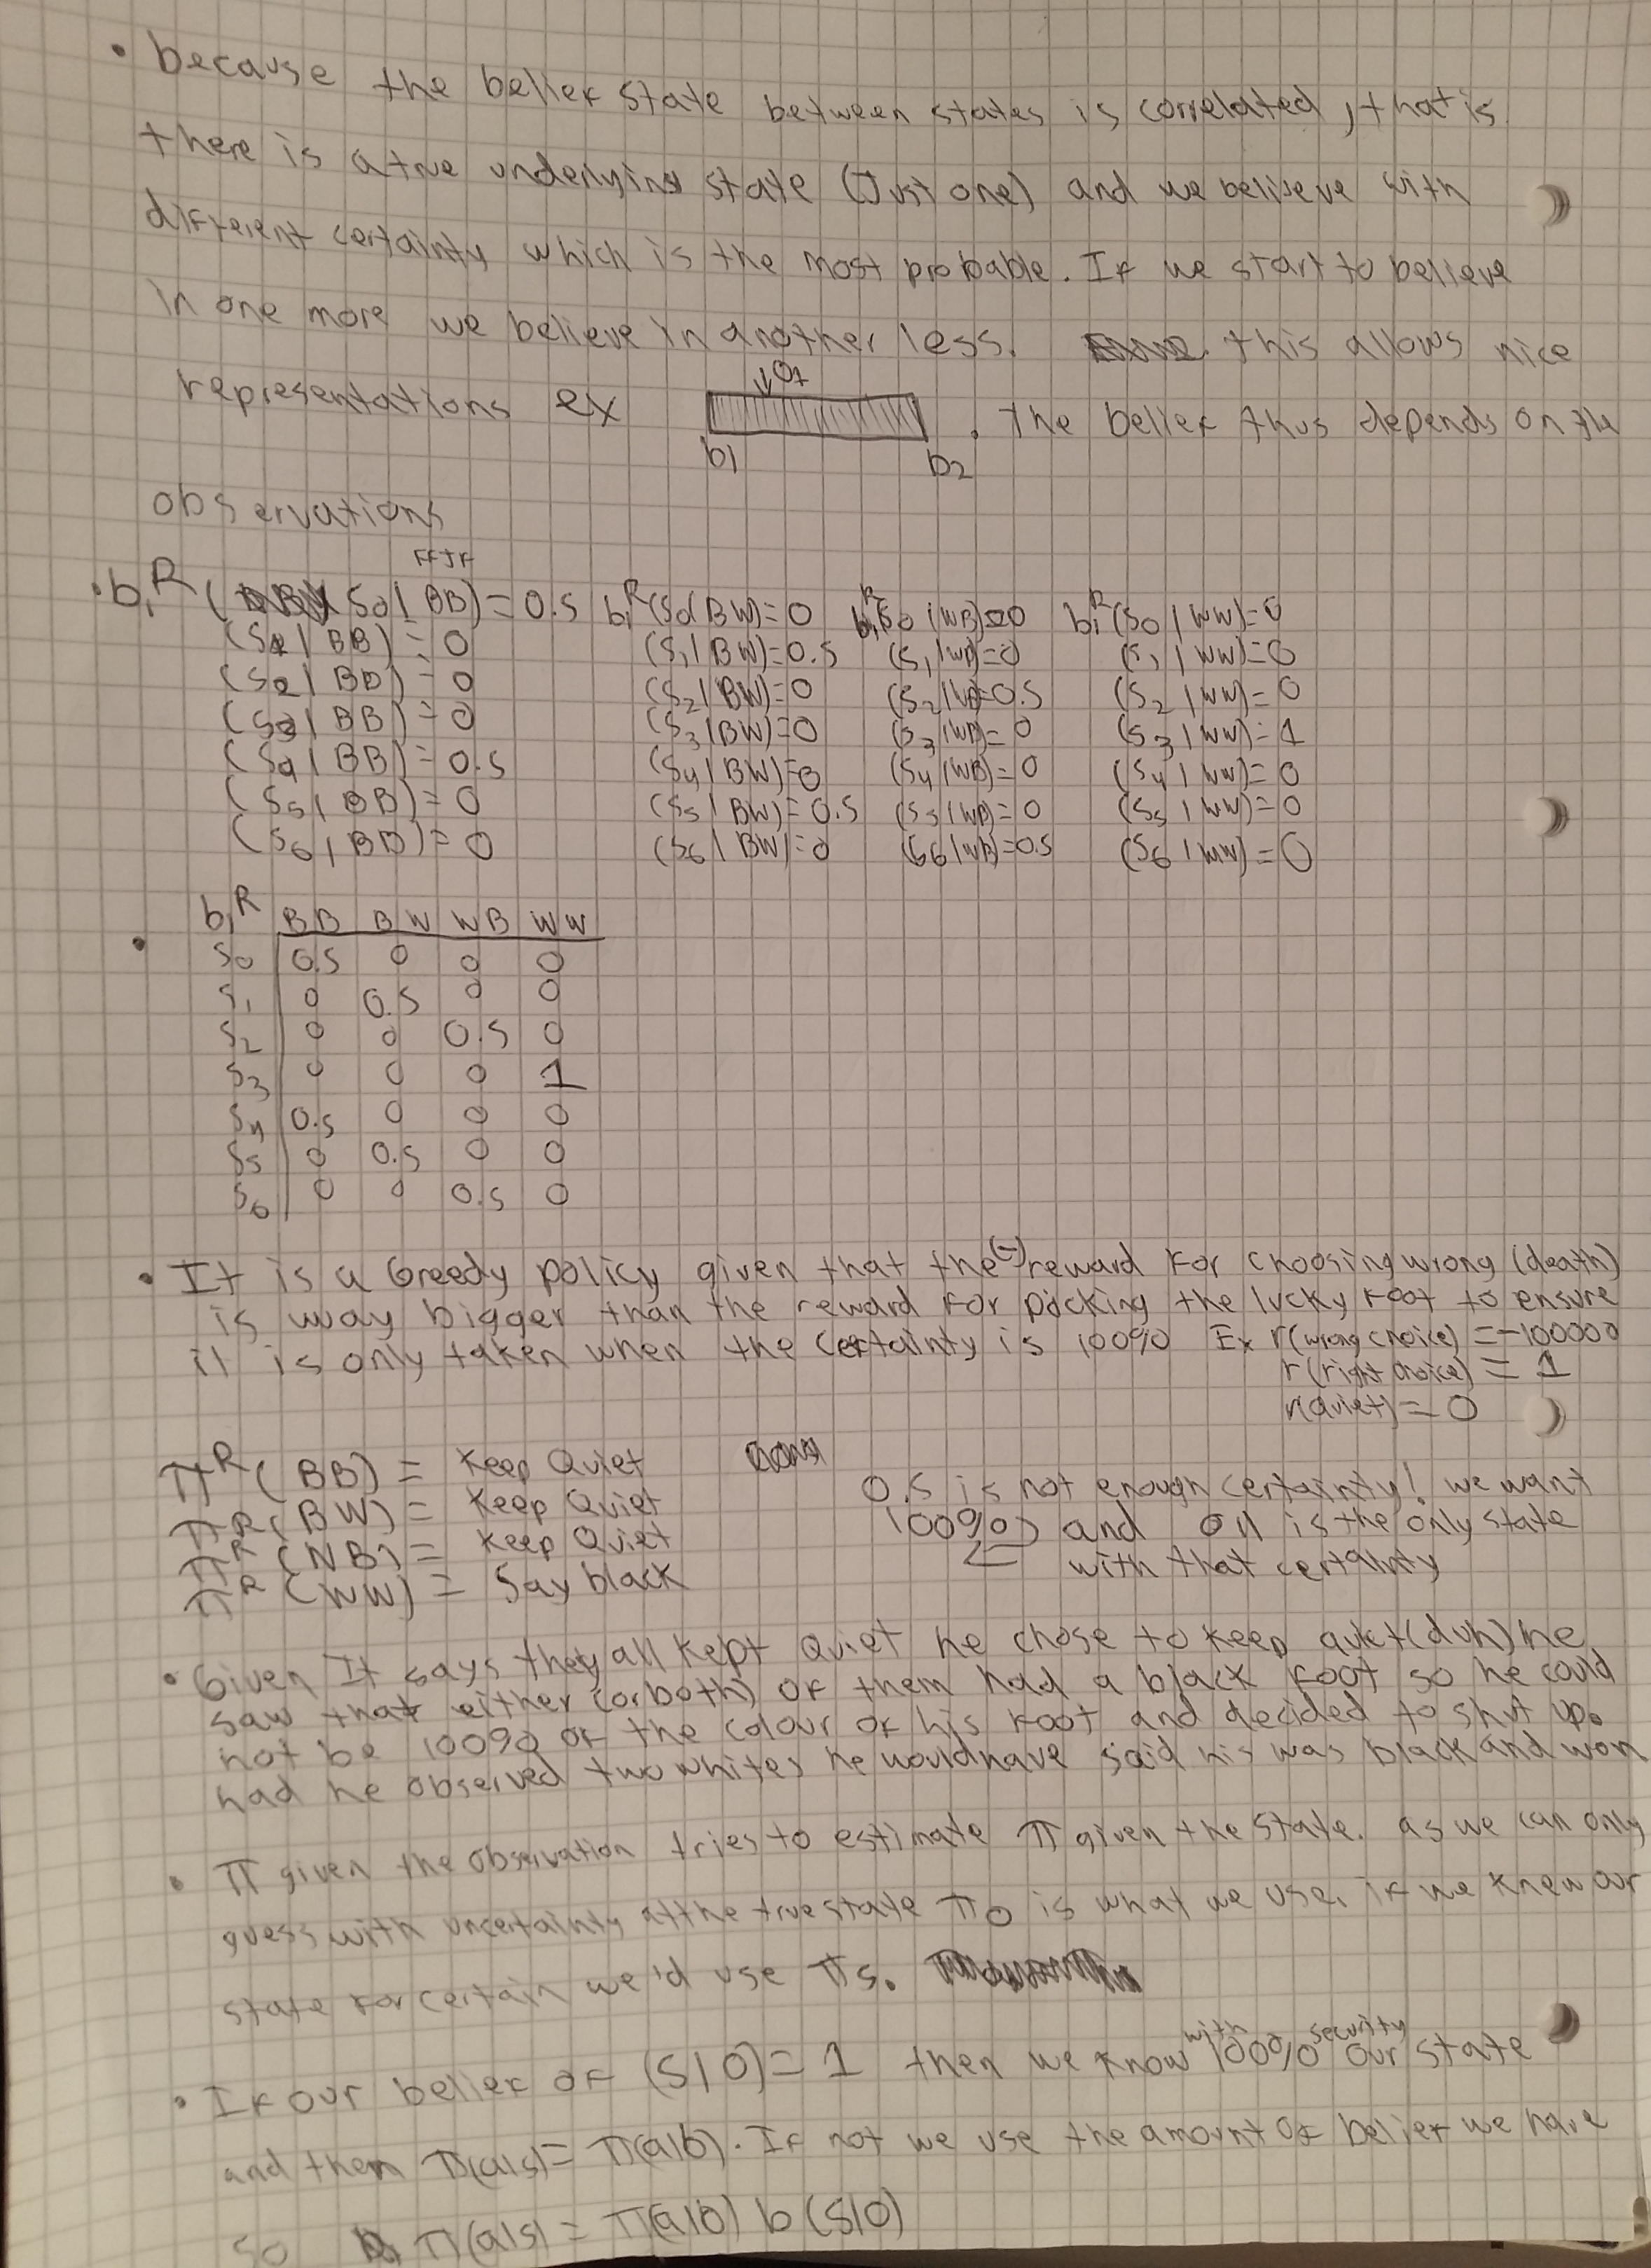 • because the belief state between states is correlated, that is
there is a true underlying state (Just one) and we believe with
different certainty which is the most probable. If we start to believe
in one more we believe in another less. this allows nice
representations ex b1 ↓O1 b2 . The belief thus depends on the
observations
FFJF
• b1^R (S0 | BB) = 0.5 b1^R (S0 | BW) = 0 b1^R (S0 | WB) = 0 b1^R (S0 | WW) = 0
(S1 | BB) = 0 (S1 | BW) = 0.5 (S1 | WB) = 0 (S1 | WW) = 0
(S2 | BB) = 0 (S2 | BW) = 0 (S2 | WB) = 0.5 (S2 | WW) = 0
(S3 | BB) = 0 (S3 | BW) = 0 (S3 | WB) = 0 (S3 | WW) = 1
(S4 | BB) = 0.5 (S4 | BW) = 0 (S4 | WB) = 0 (S4 | WW) = 0
(S5 | BB) = 0 (S5 | BW) = 0.5 (S5 | WB) = 0 (S5 | WW) = 0
(S6 | BB) = 0 (S6 | BW) = 0 (S6 | WB) = 0.5 (S6 | WW) = 0
• b1^R BB BW WB WW
S0 0.5 0 0 0
S1 0 0.5 0 0
S2 0 0 0.5 0
S3 0 0 0 1
S4 0.5 0 0 0
S5 0 0.5 0 0
S6 0 0 0.5 0
• It is a Greedy policy given that the (-) reward for choosing wrong (death)
is way bigger than the reward for picking the lucky foot to ensure
it is only taken when the certainty is 100% Ex r(wrong choice) = -100000
r(right choice) = 1
r(quiet) = 0
π^R (BB) = Keep Quiet
π^R (BW) = Keep Quiet
π^R (NB) = Keep Quiet
π^R (WW) = Say black
0.5 is not enough certainty! we want
100% and O11 is the only state
with that certainty
• Given It says they all kept quiet he chose to keep quiet (duh) he
saw that either (or both) of them had a black foot so he could
not be 100% of the colour of his foot and decided to shut up.
had he observed two whites he would have said his was black and won
• π given the observation tries to estimate π given the state. as we can only
guess with uncertainty at the true state πo is what we use, if we knew our
state for certain we'd use πs.
• If our belief of (S|O) = 1 then we know with 100% security our state
and then π(a|s) = π(a|o). If not we use the amount of belief we have
so π(a|s) = π(a|o) b(s|o)